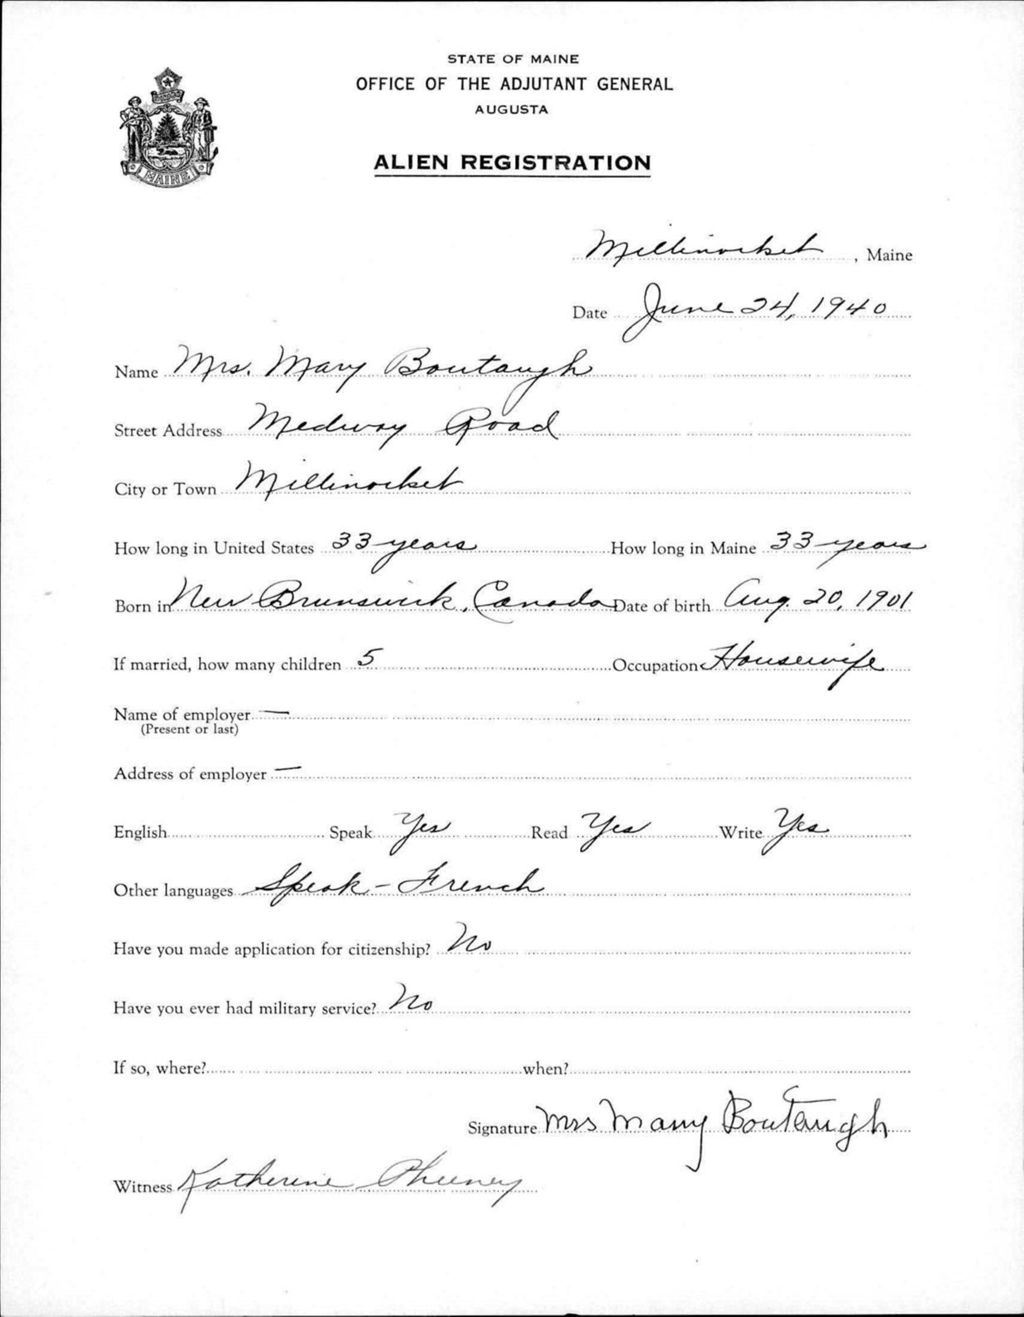 STATE OF MAINE
OFFICE OF THE ADJUTANT GENERAL
AUGUSTA
ALIEN REGISTRATION
MAINE
Millinocket, Maine
Date June 24, 1940
Name Mrs. Mary Boutaugh
Street Address Medway Road
City or Town Millinocket
How long in United States 33 years How long in Maine 33 years
Born in New Brunswick, Canada Date of birth Aug. 20, 1901
If married, how many children 5 Occupation Housewife
Name of employer —
(Present or last)
Address of employer —
English Speak Yes Read Yes Write Yes
Other languages Speak - French
Have you made application for citizenship? No
Have you ever had military service? No
If so, where? when?
Signature Mrs Mary Boutaugh
Witness Katherine Pheeney